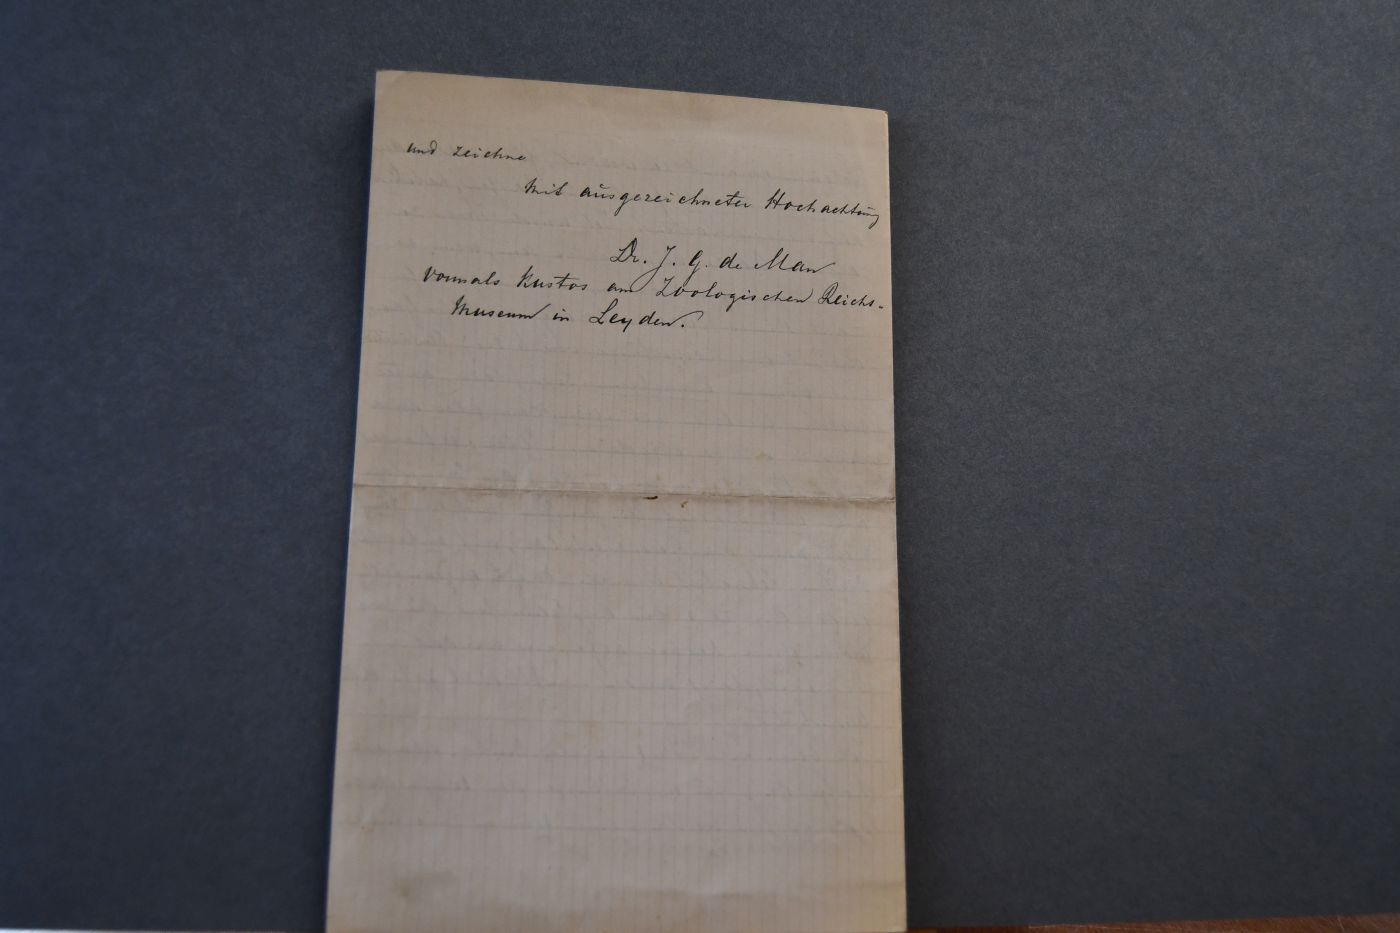 und zeichne
mit ausgezeichneter Hochachtung
Dr. J. G. de Man
vormals Kustos am Zoologischen Reichs-
Museum in Leyden.